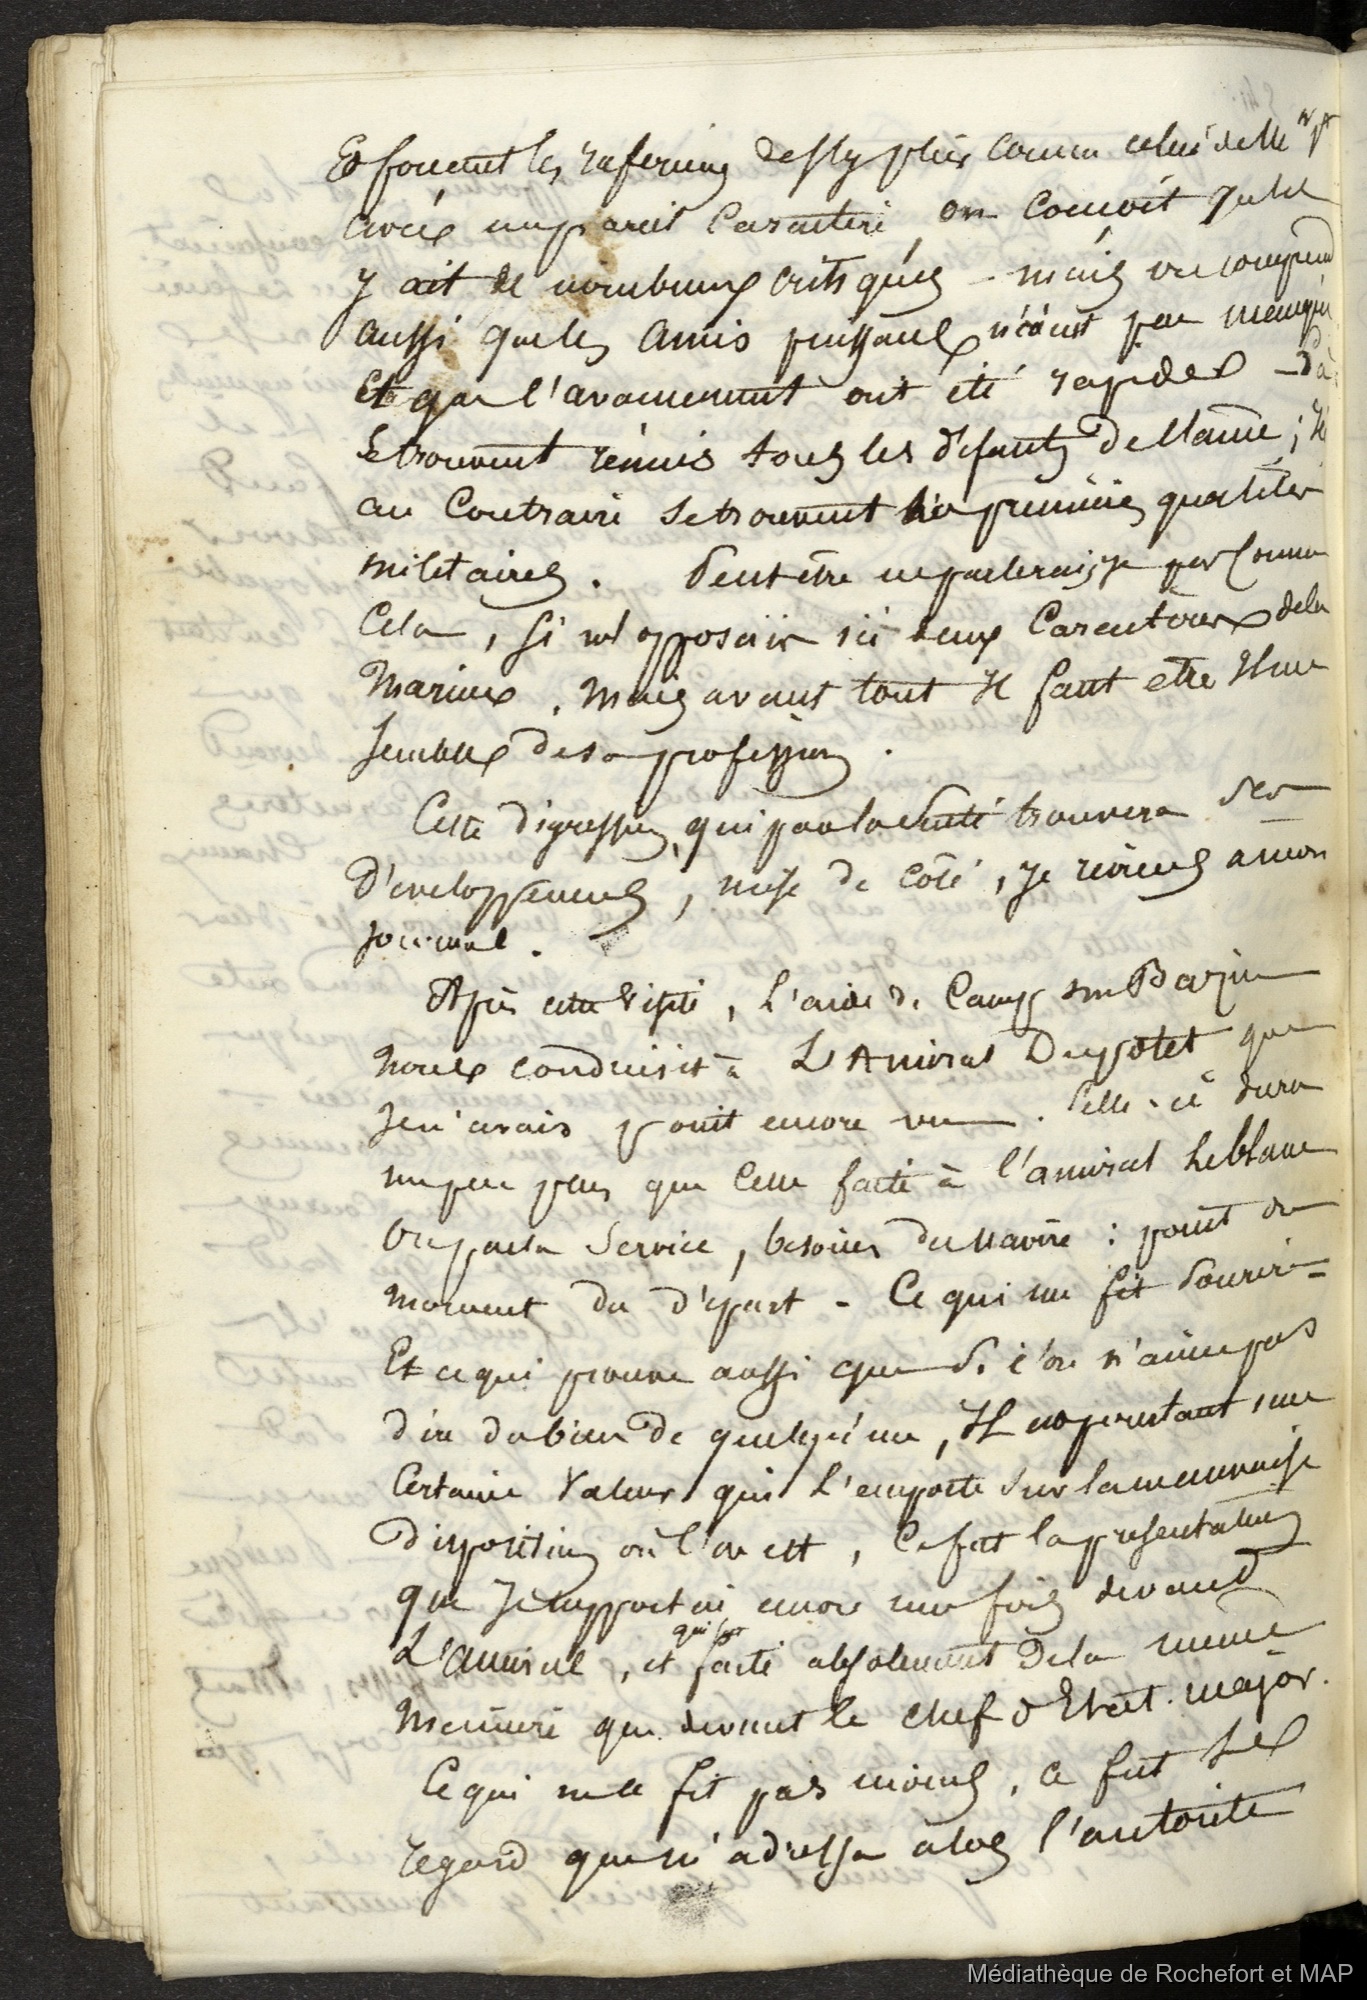 Et forcent les
avec un pareil Caractere, on conçoit qu'il
y ait de nombreux critiqués - mais on comprend
aussi que les Amis puissans n'aient pas manqué
Et que l'avancement ait été rapide -
Se trouvent réunis tous les défauts de l'ame ; 
au Contraire se trouvent les premieres qualités
militaires. Peut être ne parlerais je pas comme
Cela, Si n'opposais ici deux Caracteres de la
Marine. Mais avant tout Il faut etre
de sa profession.
Cette digression, qui par la suite trouvera ses
Développemens, mise de coté, je reviens a mon
journal.
Après cette Visite, L'aide de Camp Mr Bazin
nous conduisit à L'Amiral Dupotet que
Je n'avais point encore vu. Celle-ci dura
un peu plus que Celle faite à l'amiral Leblanc
On parla Service, besoins du navire : point du
moment du départ - Ce qui me fit Sourire -
Et ce qui prouve aussi que Si l'on n'aime pas
dire du bien de quelqu'un, Il est pourtant une
Certaine Valeur qui L'emporte Sur la mauvaise
disposition où l'on est, Ce fut la presentation
que Je supportai encore une fois devant
L'Amiral, et qui fut faite absolument de la même
Maniere que devant le chef d'Etat-major.
Ce qui ne le fit pas moins, ce fut le
regard que m'adressa alors l'autorité
Médiathèque de Rochefort et MAP